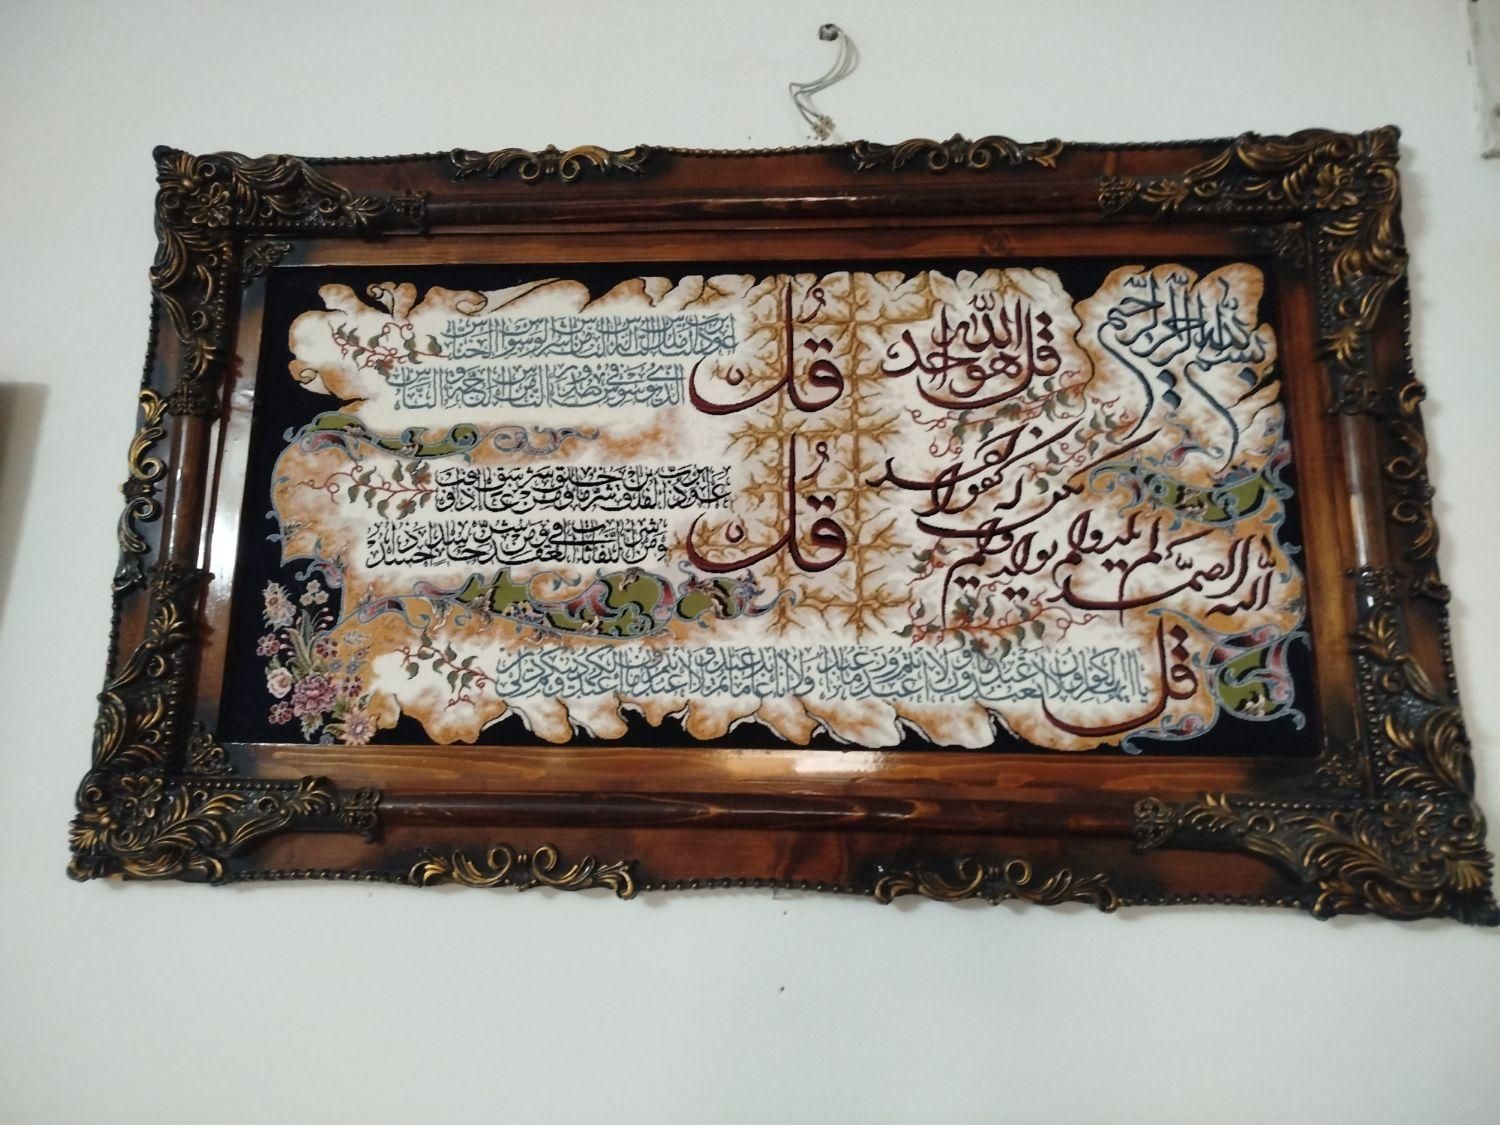 بسم الله الرحمن الرحيم
قل هو الله احد
الله الصمد لم يلد ولم يولد ولم يكن له كفوا احد
قل اعوذ برب الناس ملك الناس اله الناس من شر الوسواس الخناس
الذي يوسوس في صدور الناس من الجنة و الناس
قل اعوذ برب الفلق من شر ما خلق و من شر غاسق اذا وقب
و من شر النفاثات في العقد و من شر حاسد اذا حسد
قل يا ايها الكافرون لا اعبد ما تعبدون و لا انتم عابدون ما اعبد و لا انا عابد ما عبدتم و لا انتم عابدون ما اعبد لكم دينكم ولي دين